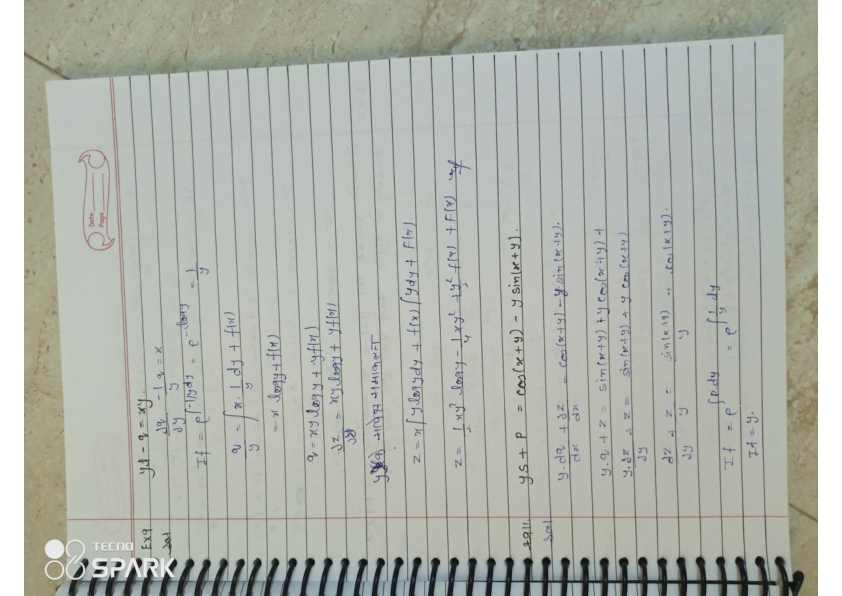 Date
Page
Ex 9 yt - q = xy.
Sol ∂q/∂y - 1/y q = x
If = e^∫-1/y dy = e^-logy = 1/y
q/y = ∫ x · 1/y dy + f(x)
= x logy + f(x)
q = xy logy + yf(x)
∂z/∂y = xy logy + yf(x)
z = x∫ylogy dy + f(x)∫ydy + F(x)
z = 1/2 xy² logy - 1/4 xy² + 1/2 y² f(x) + F(x)
ys + p = cos(x+y) - y sin(x+y).
Sol
y.dq/dx + dz/dx = cos(x+y) - y sin(x+y).
y.q + z = sin(x+y) + y cos(x+y) +
y.dz/dy + z = sin(x+y) + y cos(x+y)
dz/dy + z/y = sin(x+y)/y + cos(x+y).
If = e^∫p.dy = e^∫1/y dy
If = y.
TECNO
SPARK